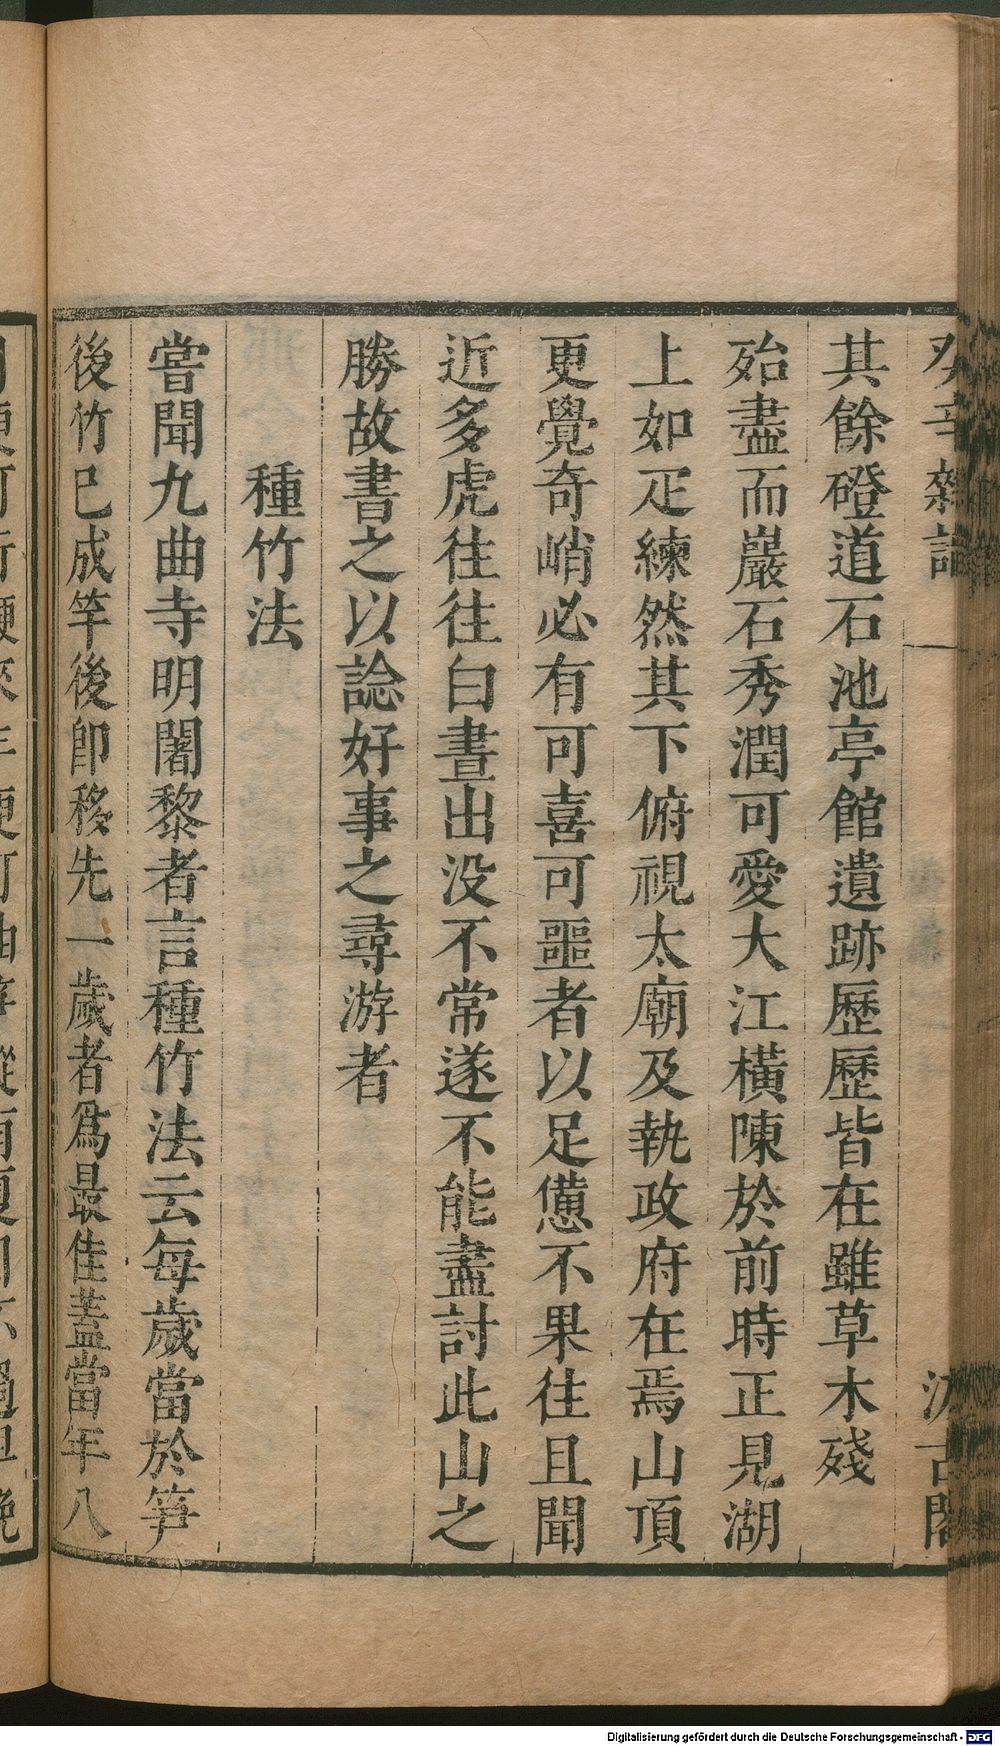 癸辛雜識
一
汲古閣
其餘磴道石池亭館遺跡歷歷皆在雖草木殘
殆盡而巖石秀潤可愛大江橫陳於前時正見湖
上如疋練然其下俯視太廟及執政府在焉山頂
更覺奇峭必有可喜可噩者以足憊不果往且聞
近多虎往往白晝出没不常遂不能盡討此山之
勝故書之以諗好事之尋游者
種竹法
嘗聞九曲寺明闍黎者言種竹法云每歲當於笋
後竹已成竿後卽移先一歲者爲最佳蓋當年八
Digitalisierung gefördert durch die Deutsche Forschungsgemeinschaft - DFG